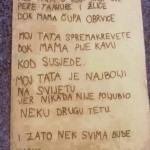 PERE TANJURE I ŽLICE
DOK MAMA ČUPA OBRVICE
MOJ TATA SPREMA KREVETE
DOK MAMA PIJE KAVU
KOD SUSJEDE.
MOJ TATA JE NAJBOLJI
NA SVIJETU
JER NIKADA NIJE POLJUBIO
NEKU DRUGU TETU.
I ZATO NEK SVIMA BUDE